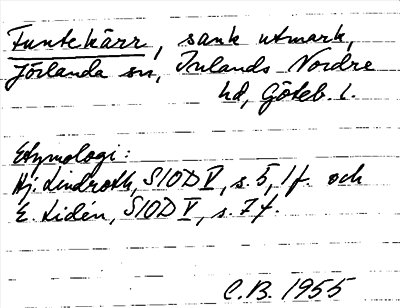 Funtekärr, sank utmark,
Jörlanda sn, Inlands Nordre
hd, Göteb. l.
Etymologi:
Hj. Lindroth, SIOD V, s. 5, 1 f. och
E. Lidén, SIOD V, s. 7 f.
C.B. 1955